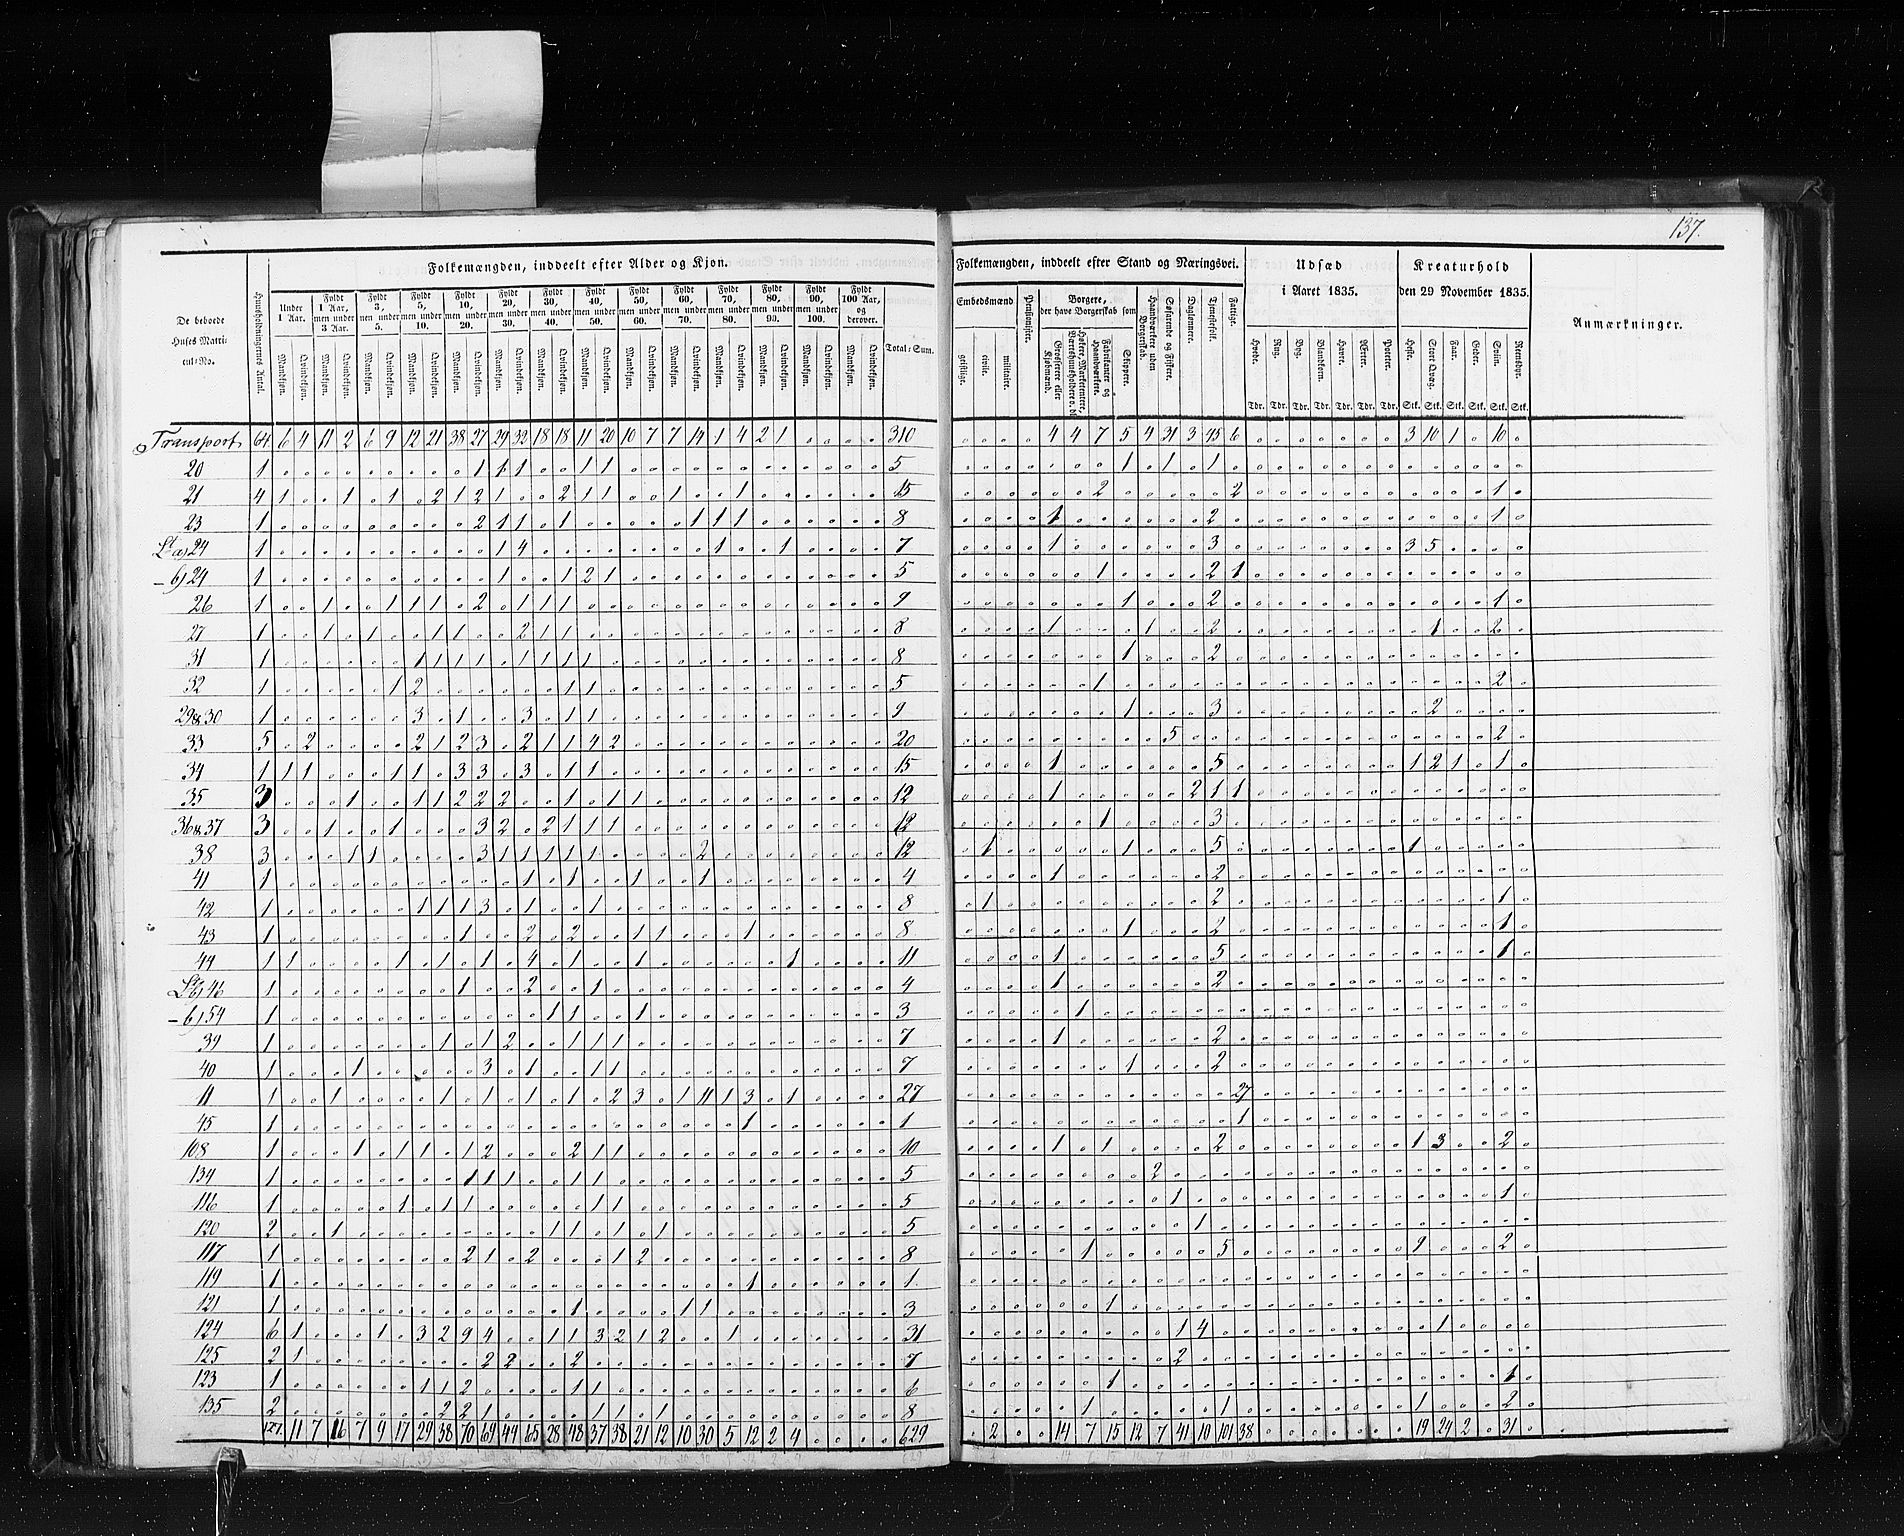 137.
Folkemængden, inddeelt efter Alder og Kjøn.
Folkemængden, inddeelt efter Stand og Næringsvei.
Udsæd i Aaret 1835.
Kreaturhold den 29 November 1835.
Anmærkninger.
De beboede Huses Matricul-No.
Huusholdningernes Antal.
Under 1 Aar.
Fyldt 1 Aar, men under 3 Aar.
Fyldt 3, men under 5.
Fyldt 5, men under 10.
Fyldt 10, men under 20.
Fyldt 20, men under 30.
Fyldt 30, men under 40.
Fyldt 40, men under 50.
Fyldt 50, men under 60.
Fyldt 60, men under 70.
Fyldt 70, men under 80.
Fyldt 80, men under 90.
Fyldt 90, men under 100.
Fyldt 100 Aar, og derover.
Mandkjøn. Qvindekjøn.
Total-Sum.
Embedsmænd
geistlige. civile. militaire.
Pensionister.
Borgere, der have Borgerskab som
Grosserere eller Kjøbmænd.
Høkere, Marketentere, Værtshuusholdere o. dl.
Fabrikanter og Haandværkere.
Skippere.
Haandværkere uden Borgerskab.
Søfarende og Fiskere.
Daglønnere.
Tjenestefolk.
Fattige.
Hvede. Rug. Byg. Blandkorn. Havre. Ærter. Poteter.
Tdr. Tdr. Tdr. Tdr. Tdr. Tdr. Tdr.
Heste. Stort Qvæg. Faar. Geder. Sviin. Reensdyr.
Stk. Stk. Stk. Stk. Stk. Stk.
Transport 64 6 4 11 2 6 9 12 21 38 27 29 32 18 18 11 20 10 7 7 14 1 4 2 1 310 4 4 7 5 4 31 3 45 6 3 10 1 10
20 1 1 1 1 1 1 5 1 1 1
21 4 1 1 1 2 1 2 1 2 1 1 1 1 15 2 2 1
23 1 2 1 1 1 1 1 1 8 1 2 1
Lt a) 24 1 1 4 1 1 7 1 3 3 5
- b) 24 1 1 1 2 1 5 1 2 1
26 1 1 1 1 1 2 1 1 1 9 1 2 1
27 1 1 1 1 1 2 1 1 8 1 1 2 1 2
31 1 1 1 1 1 1 1 1 1 8 1 2
32 1 1 2 1 1 5 1 2
29 & 30 1 3 1 3 1 1 9 1 3 2
33 5 2 2 1 2 3 2 1 1 4 2 20 5 2
34 1 1 1 1 1 3 3 3 1 1 15 1 5 1 2 1 1
35 3 1 1 1 2 2 2 1 1 1 12 1 2 1 1
36 & 37 3 1 1 3 2 2 1 1 1 12 1 3
38 3 1 1 3 1 1 1 1 1 2 12 1 1 5 1
41 1 1 1 1 1 4 1 2
42 1 1 1 1 3 1 1 8 1 2 1
43 1 1 2 2 1 1 1 8 1 2 1
44 1 1 1 1 1 4 1 1 1 11 1 5 1
46 1 1 2 1 4 1 2
- b) 54 1 1 1 1 3 1
39 1 1 1 2 1 1 1 7 1 2
40 1 1 3 1 1 1 7 1 2
11 1 1 1 1 1 1 2 3 1 11 1 3 1 27 27
45 1 1 1 1
108 1 1 1 1 1 2 2 1 1 10 1 1 2 1 3 2
134 1 1 1 1 1 1 5 2
116 1 1 1 1 1 1 5 1 1
120 2 1 1 1 1 1 5 1
117 1 2 1 2 1 2 8 1 5 9 2
119 1 1 1
121 1 1 1 1 3 1
124 6 1 1 3 2 9 4 1 1 3 2 1 2 1 31 1 4 1
125 2 1 2 2 2 7 2
123 1 1 1 2 1 1 6 1 1
135 2 2 2 1 1 1 1 8 1 1 1 2
127. 11 7 16 7 9 17 29 38 70 69 44 65 28 48 37 38 21 12 10 30 5 12 2 4 629 2 14 7 15 12 7 41 10 101 38 19 24 2 31